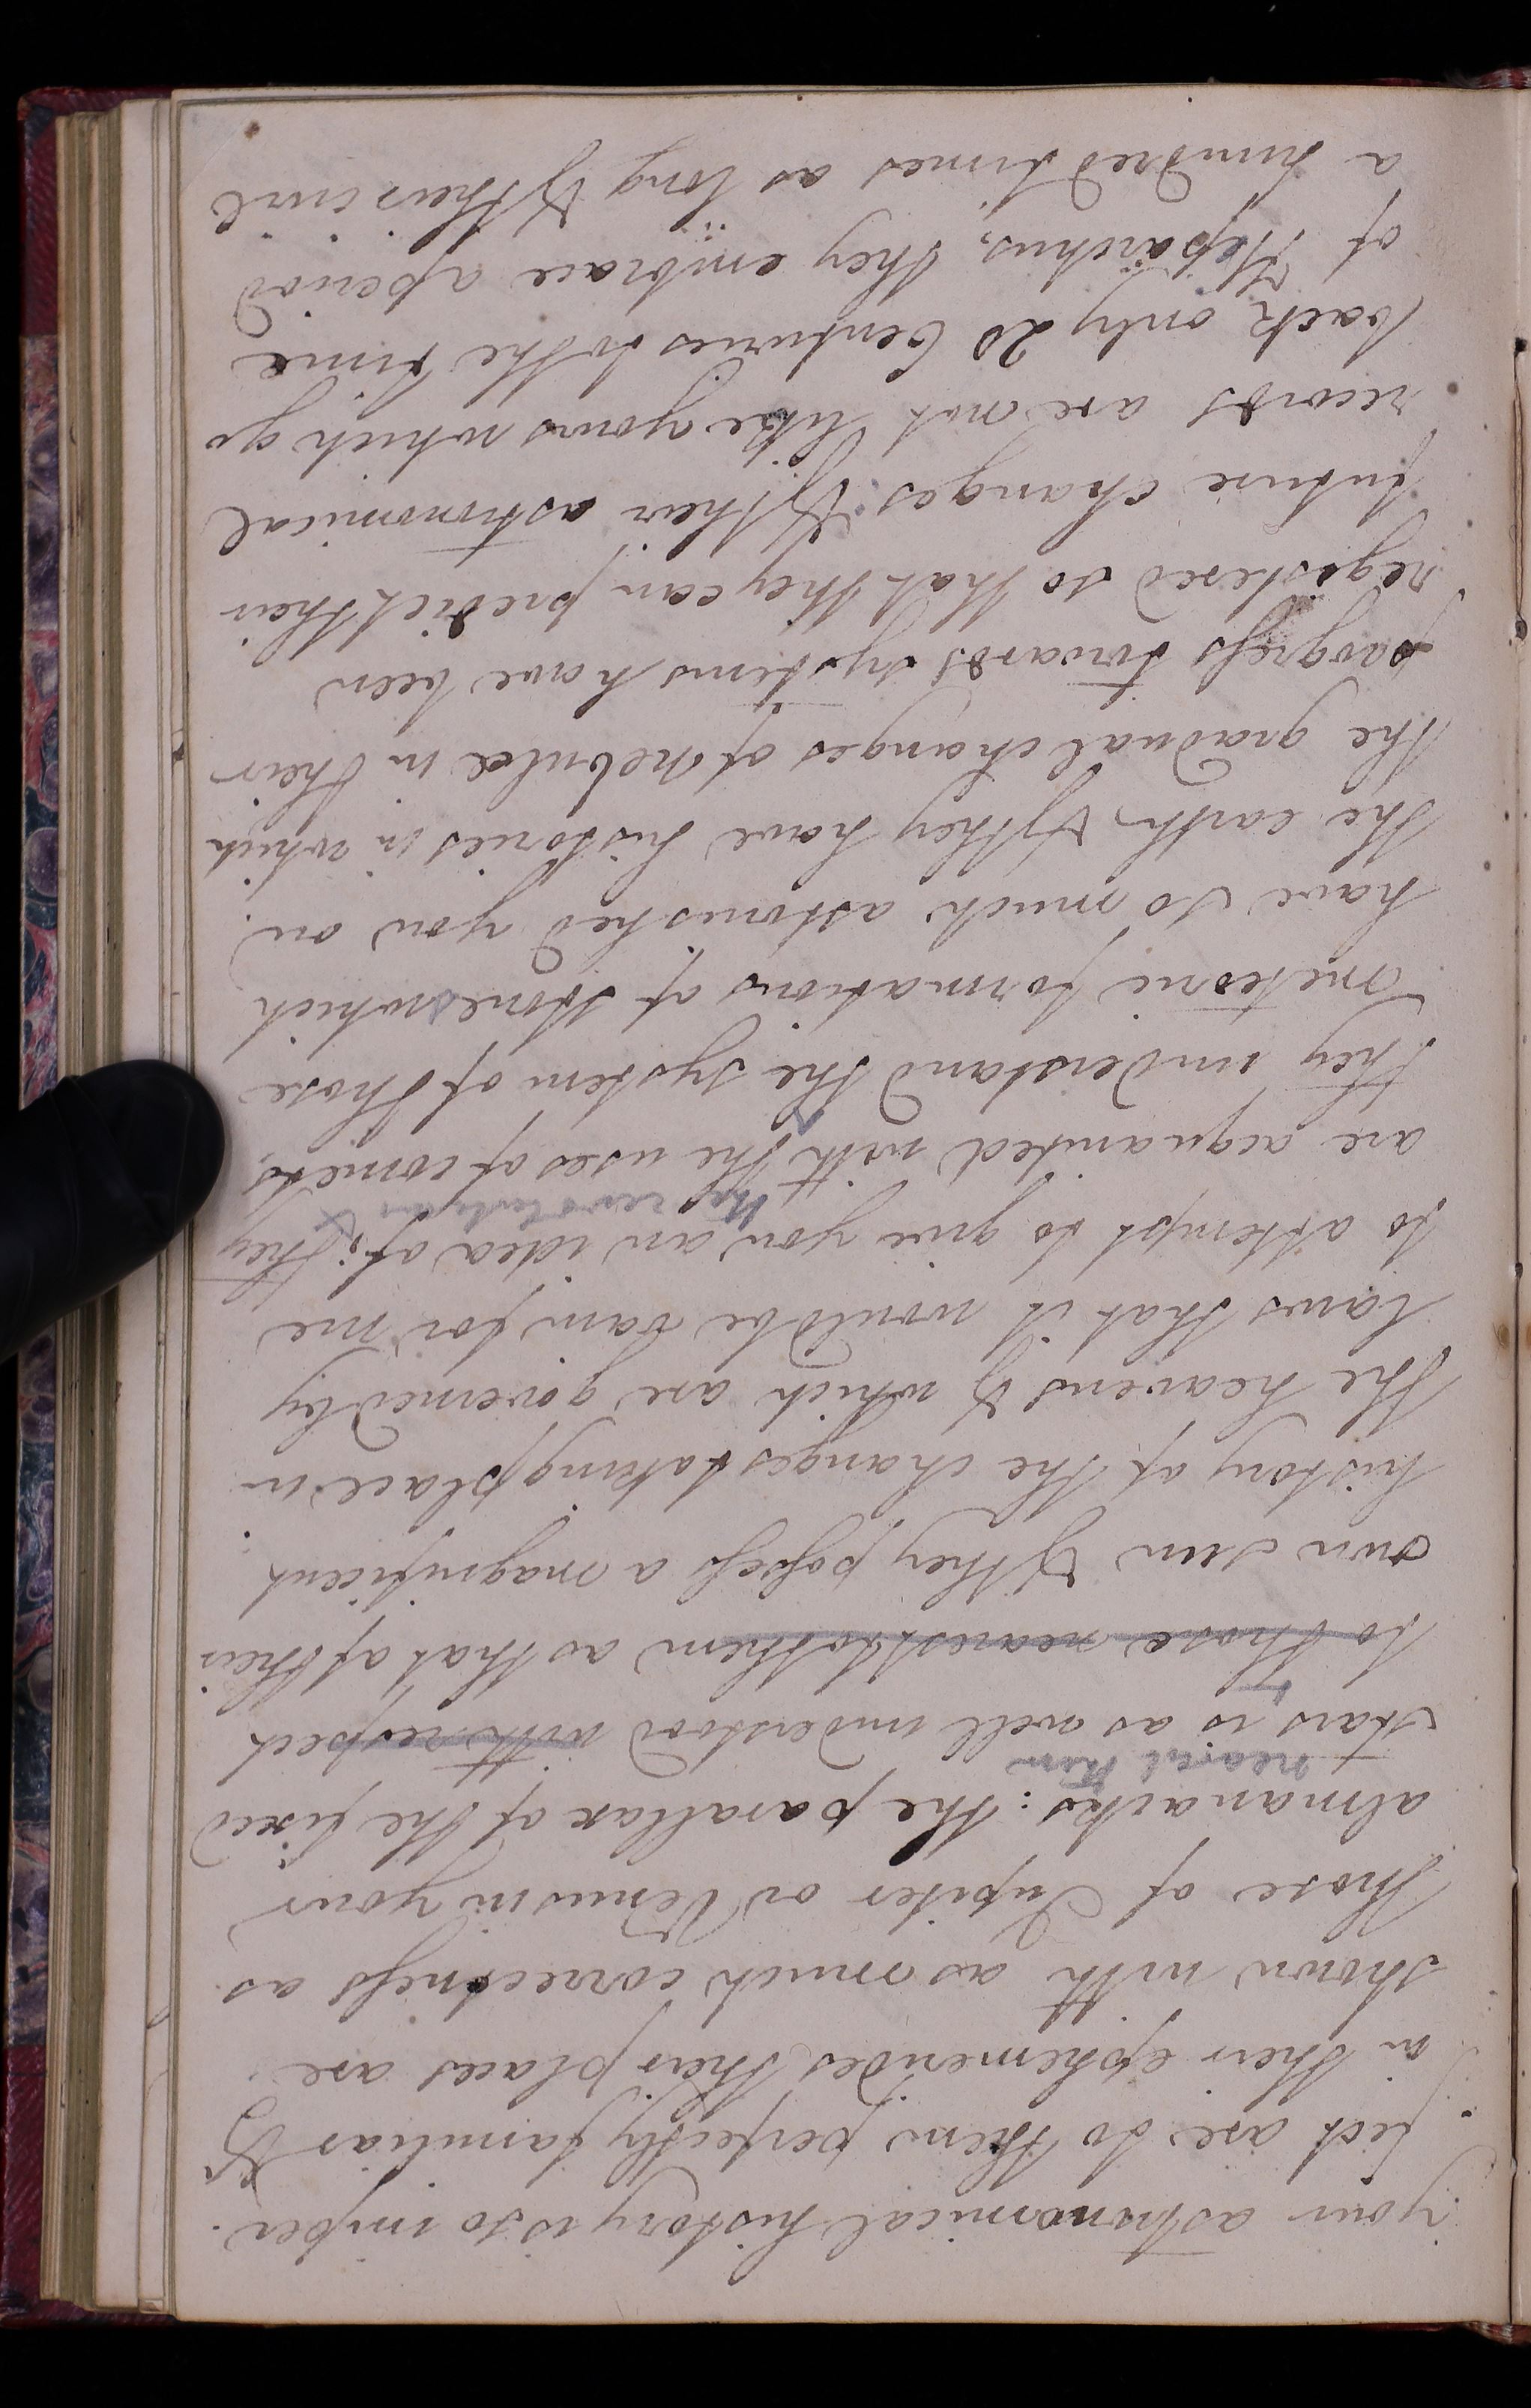 your astronomical history is so imper-
fect are to them perfectly familiar &
in their ephemerides their places are
shown with as much correctness as
those of Jupiter or Venus in your
almanacks: the parallax of the fixed
nearest them
stars is as well understood with respect
to those nearest to them as that of their
own sun & they possess a magnificent
history of the changes taking place in
the heavens & which are governed by
laws that it would be vain for me
to attempt to give you an idea of; they
the revolutions &
are acquainted with the uses of comets,
they understand the system of those
meteoric formations of stones which
have so much astonished you on
the earth, & they have histories in which
the gradual changes of nebulæ in their
progress towards systems have been
registered so that they can predict their
future changes. & their astronomical
records are not like yours which go
back only 20 Centuries to the time
of Hipparchus, they embrace a period
a hundred times as long & their civil